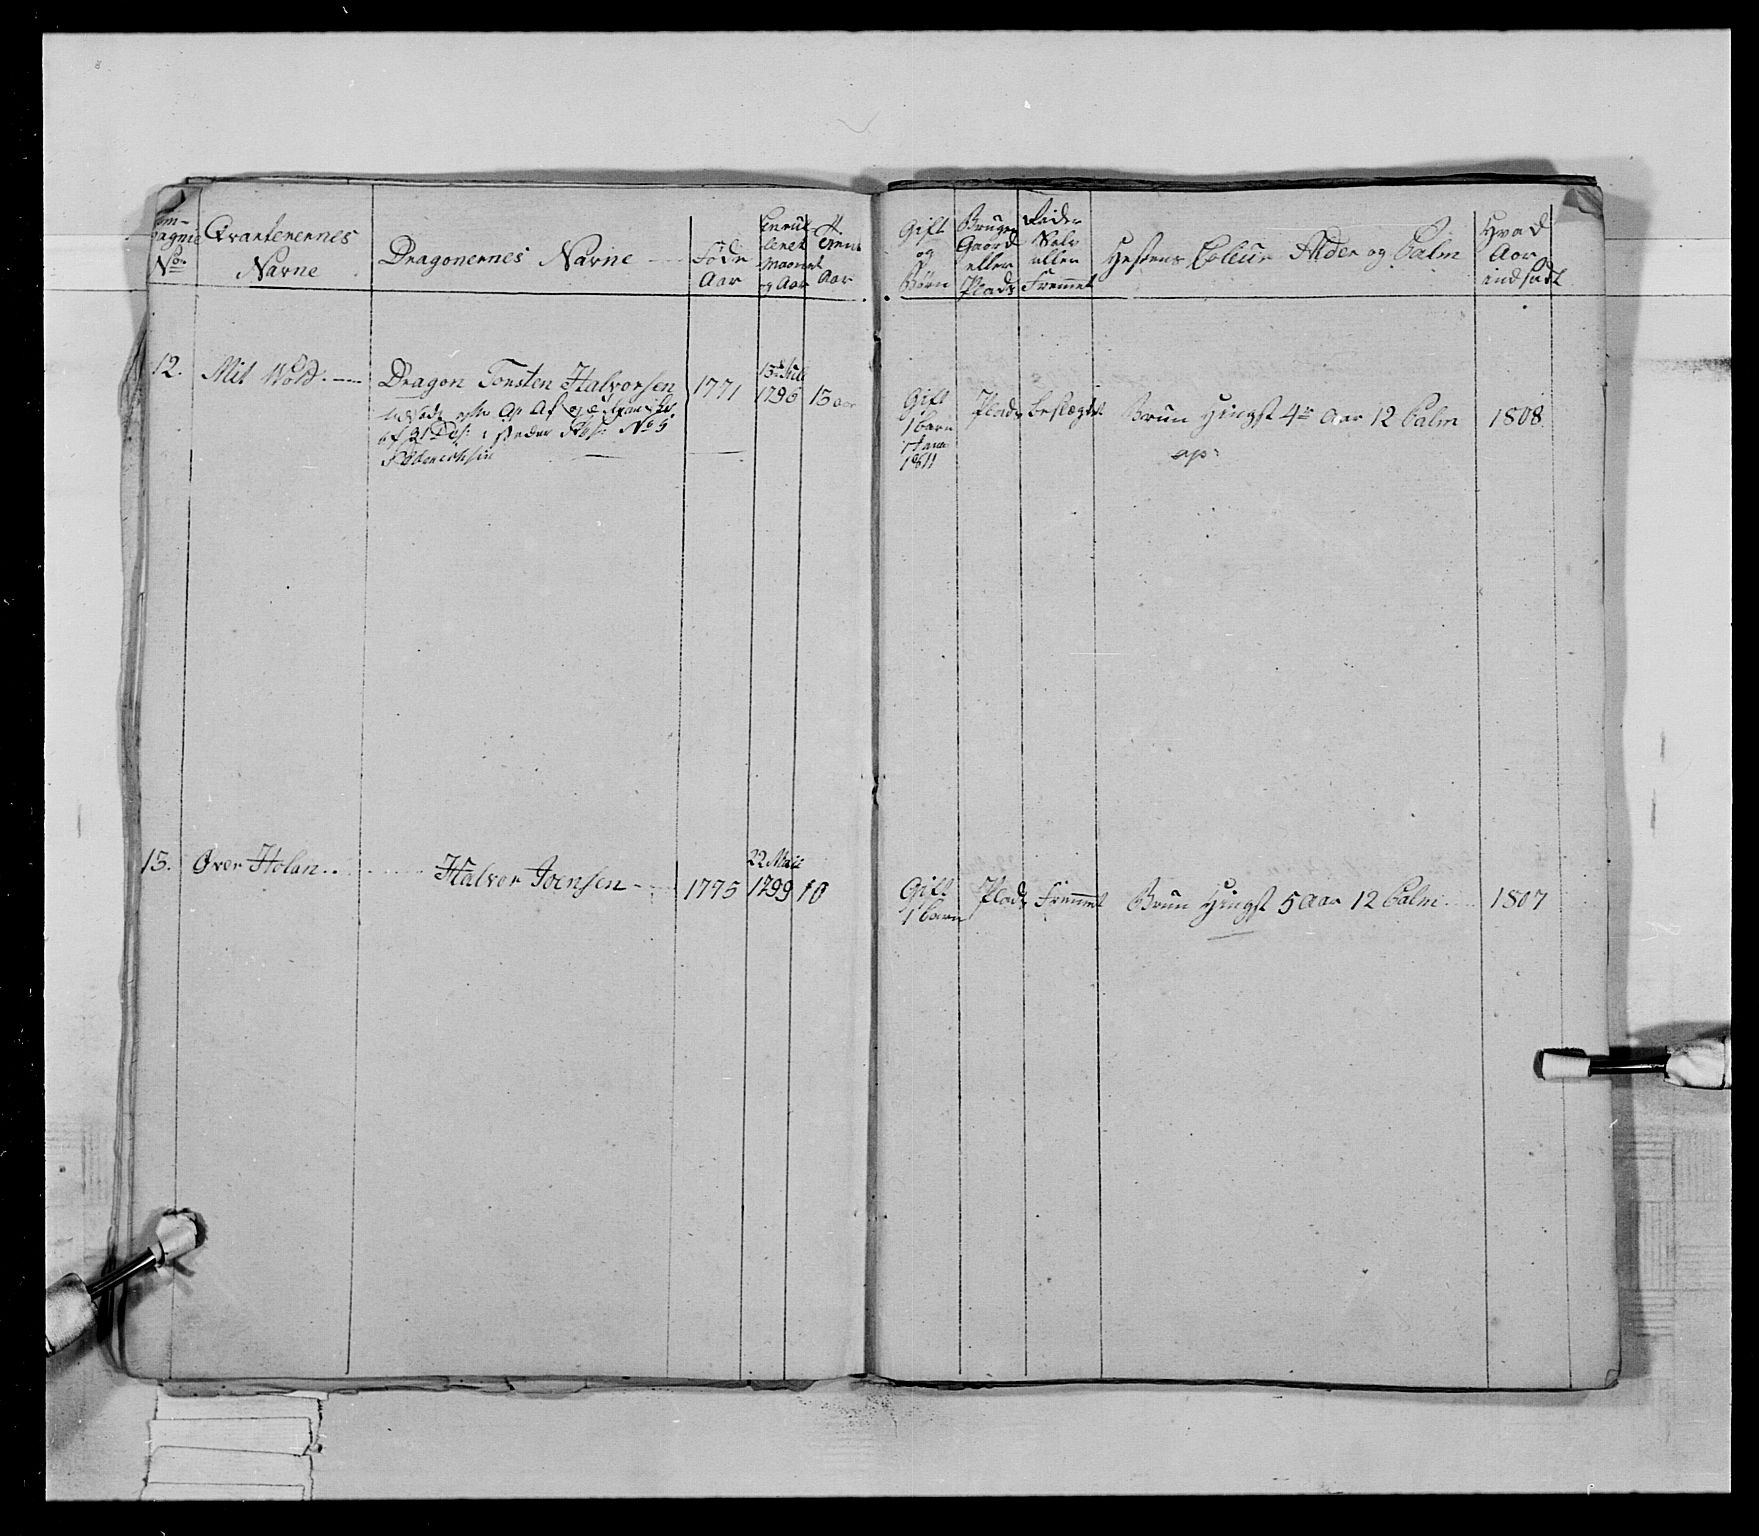 Com-
pagnie
No
Qvarterernes
Navne
Dragonernes Navne
Føde
Aar
Enrul
leret
Maaned
og Aar
Aar
Gift
og
Børn
Bruger
Gaard
eller
Plads
Rider
Selv
eller
Fremmet
Hestens Coleur Alder og Palm
Hvad
Aar
indsadt
12. Mit Wold. Dragon Torsten Halvorsen 1771 1796 13 aar
Gift
1 barn
1811
Plads beslægtet Brun Hingst 4re Aar 12 Palm 1808
13. Øver Holan.. Halvor Joensen 1775 22 Maii
1799 10
Gift
1 barn
Plads Fremmet Brun Hingst 5 Aar 12 Palm 1807